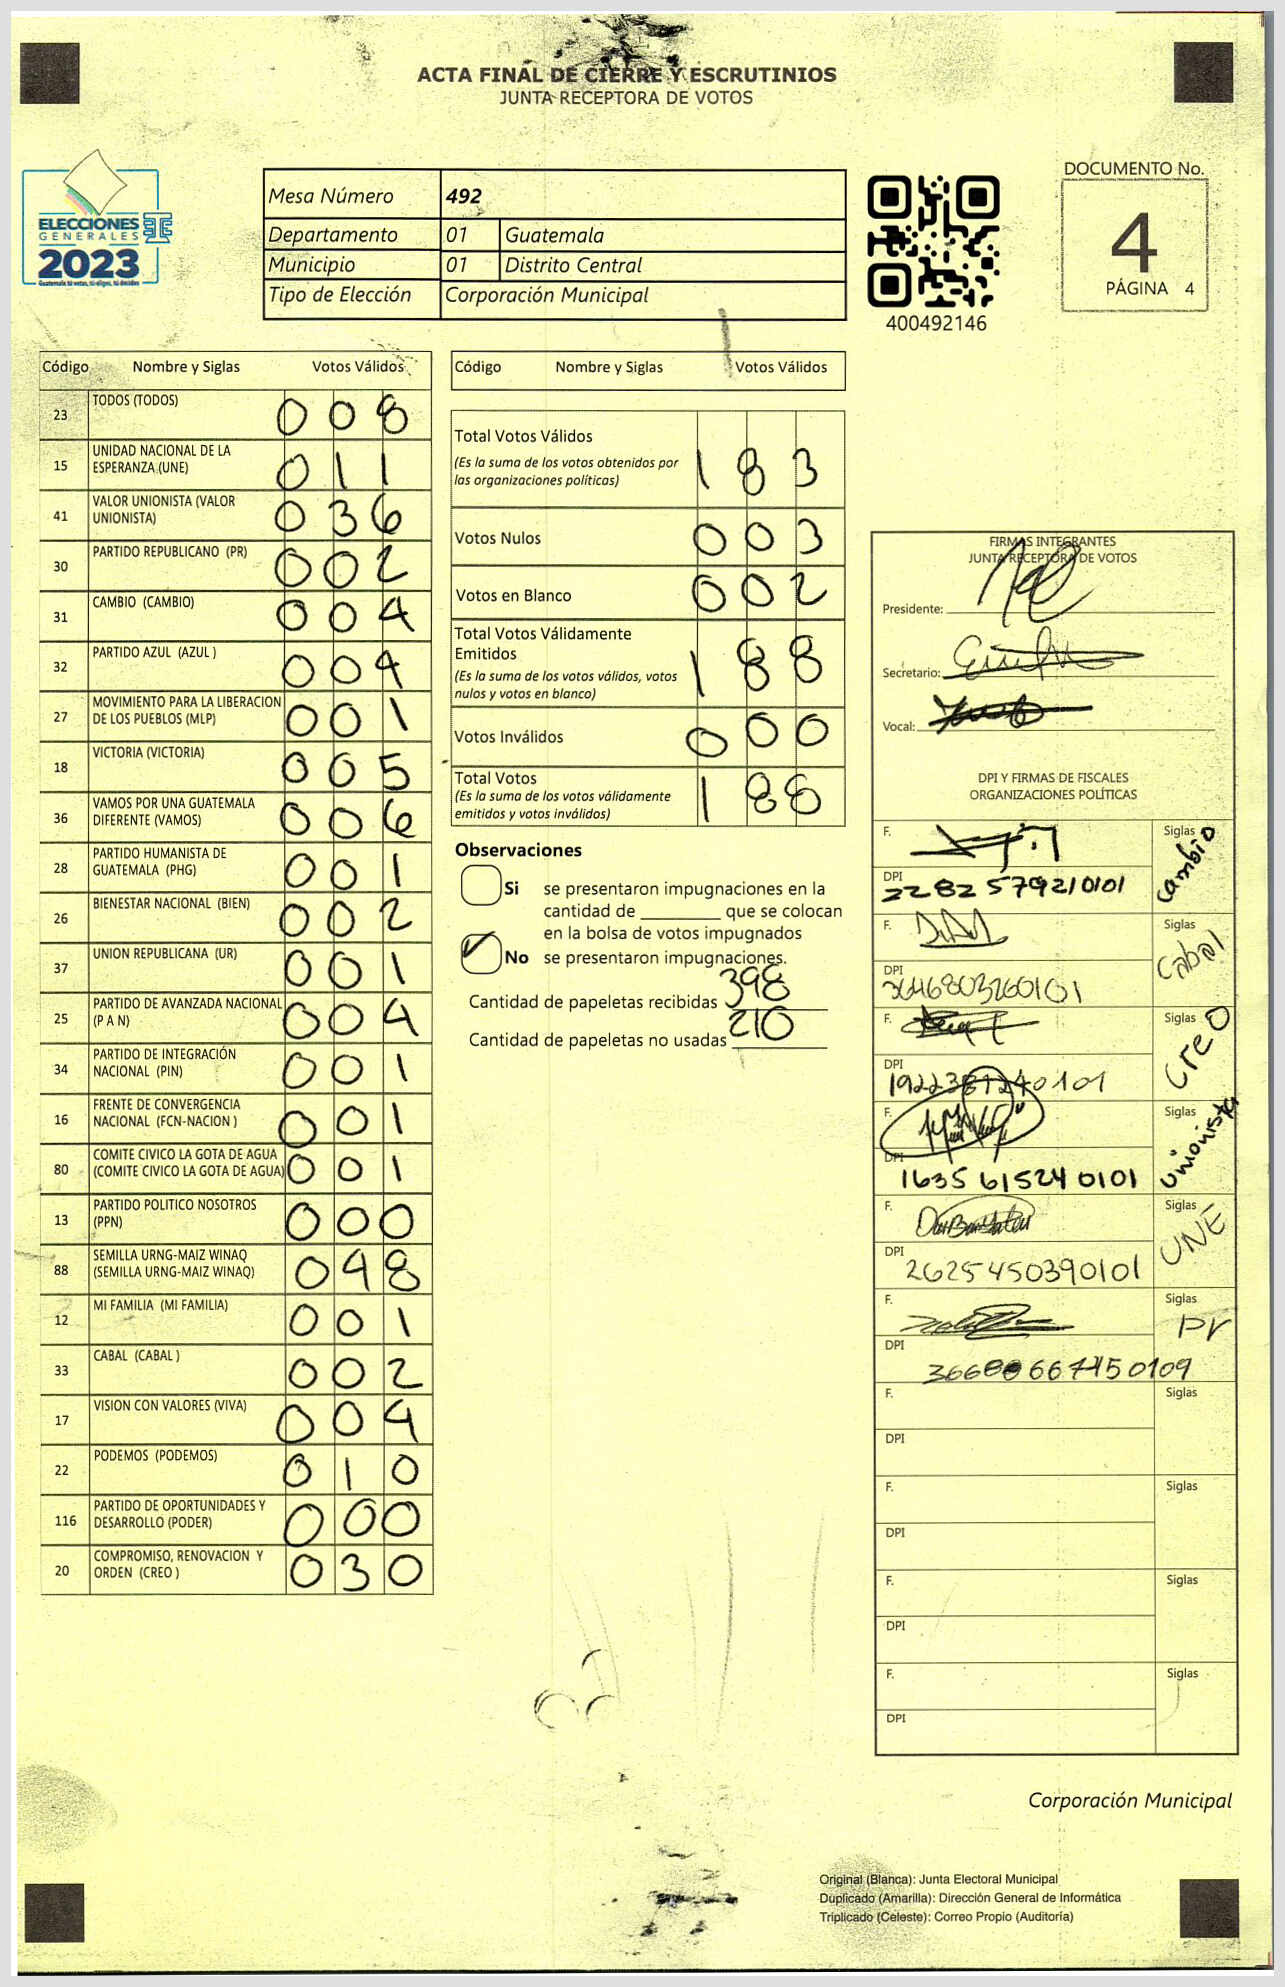 ACTA FINAL DE CIERRE Y ESCRUTINIOS
JUNTA RECEPTORA DE VOTOS
ELECCIONES
GENERALES
2023
Guatemala tú votas, tú eliges, tú decides
Mesa Número 492
Departamento 01 Guatemala
Municipio 01 Distrito Central
Tipo de Elección Corporación Municipal
400492146
DOCUMENTO No.
4
PÁGINA 4
Código Nombre y Siglas Votos Válidos
23 TODOS (TODOS) 008
15 UNIDAD NACIONAL DE LA
ESPERANZA (UNE) 011
41 VALOR UNIONISTA (VALOR
UNIONISTA) 036
30 PARTIDO REPUBLICANO (PR) 002
31 CAMBIO (CAMBIO) 004
32 PARTIDO AZUL (AZUL ) 004
27 MOVIMIENTO PARA LA LIBERACION
DE LOS PUEBLOS (MLP) 001
18 VICTORIA (VICTORIA) 005
36 VAMOS POR UNA GUATEMALA
DIFERENTE (VAMOS) 006
28 PARTIDO HUMANISTA DE
GUATEMALA (PHG) 001
26 BIENESTAR NACIONAL (BIEN) 002
37 UNION REPUBLICANA (UR) 001
25 PARTIDO DE AVANZADA NACIONAL
(P A N) 004
34 PARTIDO DE INTEGRACIÓN
NACIONAL (PIN) 001
16 FRENTE DE CONVERGENCIA
NACIONAL (FCN-NACION ) 001
80 COMITE CIVICO LA GOTA DE AGUA
(COMITE CIVICO LA GOTA DE AGUA) 001
13 PARTIDO POLITICO NOSOTROS
(PPN) 000
88 SEMILLA URNG-MAIZ WINAQ
(SEMILLA URNG-MAIZ WINAQ) 048
12 MI FAMILIA (MI FAMILIA) 001
33 CABAL (CABAL ) 002
17 VISION CON VALORES (VIVA) 004
22 PODEMOS (PODEMOS) 010
116 PARTIDO DE OPORTUNIDADES Y
DESARROLLO (PODER) 000
20 COMPROMISO, RENOVACION Y
ORDEN (CREO ) 030
Código Nombre y Siglas Votos Válidos
Total Votos Válidos 183
(Es la suma de los votos obtenidos por
las organizaciones políticas)
Votos Nulos 003
Votos en Blanco 002
Total Votos Válidamente
Emitidos 188
(Es la suma de los votos válidos, votos
nulos y votos en blanco)
Votos Inválidos 000
Total Votos 188
(Es la suma de los votos válidamente
emitidos y votos inválidos)
Observaciones
Si se presentaron impugnaciones en la
cantidad de ________ que se colocan
en la bolsa de votos impugnados
No se presentaron impugnaciones.
Cantidad de papeletas recibidas 398
Cantidad de papeletas no usadas 210
FIRMAS INTEGRANTES
JUNTA RECEPTORA DE VOTOS
Presidente:
Secretario:
Vocal:
DPI Y FIRMAS DE FISCALES
ORGANIZACIONES POLÍTICAS
F. Siglas cambio
DPI 2282 579210101
F. Siglas Cabal
DPI 3646803260101
F. Siglas CreO
DPI
F. Siglas Unionista
DPI 1635 61524 0101
F. Siglas UNE
DPI 2625450390101
F. Siglas PR
DPI
F. Siglas
DPI
F. Siglas
DPI
F. Siglas
DPI
F. Siglas
DPI
Corporación Municipal
Original (Blanca): Junta Electoral Municipal
Duplicado (Amarilla): Dirección General de Informática
Triplicado (Celeste): Correo Propio (Auditoría)